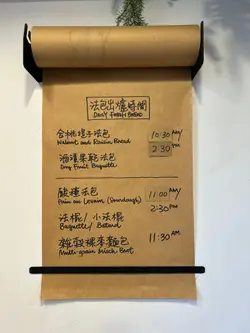 法包出爐時間
DAILY FRESH BREAD
合桃提子法包 10:30 AM/
Walnut and Raisin Bread 2:30 PM
酒漬果乾法包
Soay Fruit Baguette
酸種法包 11:00 AM/
Pain au Levain (Sourdough) 2:30 PM
法棍/小法棍
Baguette/Batard
雜穀裸麥麵包 11:30 AM
Multi-grain Misch Brot